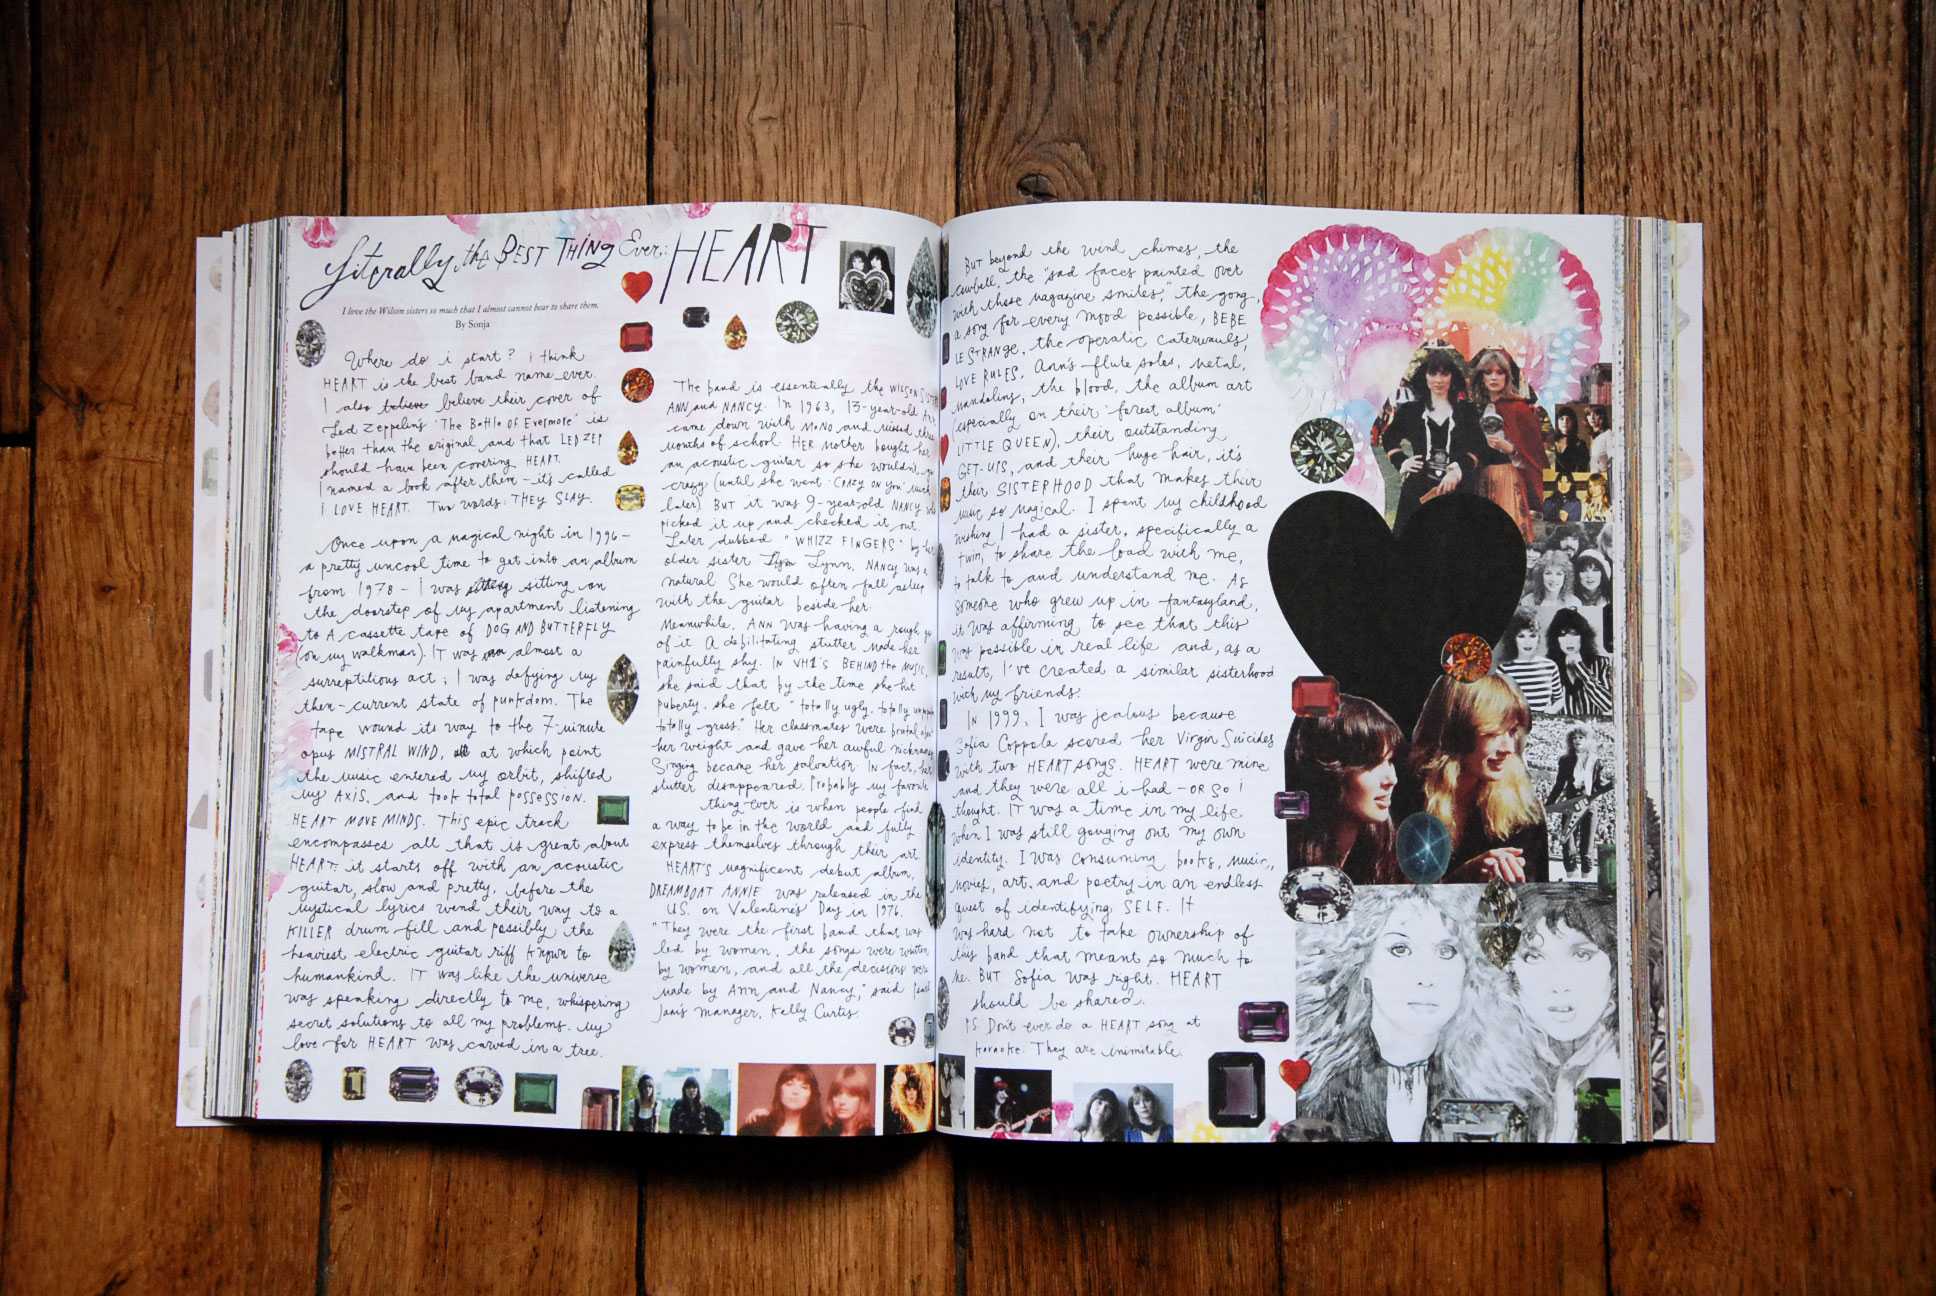 Literally the BEST THING Ever: HEART
I love the Wilson sisters so much that I almost cannot bear to share them.
By Sonja
Where do i start? i think
HEART is the best band name ever.
I also believe believe their cover of
Led Zeppelin's 'The Battle of Evermore' is
better than the original and that LED ZEP
should have been covering HEART.
I named a book after them - it's called
I LOVE HEART. Two words: THEY SLAY.
Once upon a magical night in 1996 -
a pretty uncool time to get into an album
from 1978 - I was sitting on
the doorstep of my apartment listening
to A cassette tape of DOG AND BUTTERFLY
(on my walkman). IT was almost a
surreptitious act; I was defying my
then-current state of punkdom. The
tape wound its way to the 7-minute
opus MISTRAL WIND, at which point
the music entered my orbit, shifted
my AXIS, and took total possession.
HEART MOVE MINDS. This epic track
encompasses all that is great about
HEART: it starts off with an acoustic
guitar, slow and pretty, before the
mystical lyrics wend their way to a
KILLER drum fill and possibly the
heaviest electric guitar riff known to
humankind. IT was like the universe
was speaking directly to me, whispering
secret solutions to all my problems. My
love for HEART was carved in a tree.
The band is essentially the WILSON
ANN and NANCY. In 1963, 13-year-old Ann
came down with MONO and missed three
months of school. HER mother bought her
an acoustic guitar so she wouldn't go
crazy (until she went 'CRAZY ON YOU' much
later). BUT it was 9-year-old NANCY who
picked it up and checked it out.
Later dubbed "WHIZZ FINGERS" by her
older sister Lynn, NANCY was a
natural. She would often fall asleep
with the guitar beside her.
Meanwhile, ANN was having a rough go
of it. A debilitating stutter made her
painfully shy. IN VH1'S BEHIND the MUSIC,
she said that by the time she hit
puberty, she felt "totally ugly, totally
totally gross." Her classmates were brutal about
her weight and gave her awful nicknames.
Singing became her salvation. IN fact, her
stutter disappeared. Probably my favourite
thing ever is when people find
a way to be in the world and fully
express themselves through their art.
HEART'S magnificent debut album,
DREAMBOAT ANNIE was released in the
U.S. on Valentine's Day in 1976.
"They were the first band that was
led by women, the songs were written
by women, and all the decisions were
made by Ann and Nancy," said
manager, Kelly Curtis.
BUT beyond the wind chimes, the
cowbell, the "sad faces painted over
with those magazine smiles," the gong,
a song for every mood possible, BEBE
LE STRANGE, the operatic caterwauls,
LOVE RULES, Ann's flute solos, metal,
mandolins, the blood, the album art
(especially on their 'forest album'
LITTLE QUEEN), their outstanding
GET-UPS, and their huge hair, it's
their SISTERHOOD that makes their
music so magical. I spent my childhood
wishing I had a sister, specifically a
twin, to share the load with me,
to talk to and understand me. As
someone who grew up in fantasyland,
it was affirming to see that this
was possible in real life and, as a
result, I've created a similar sisterhood
with my friends.
IN 1999, I was jealous because
Sofia Coppola scored her Virgin Suicides
with two HEART songs. HEART were mine
and they were all i had - OR SO I
thought. IT was a time in my life
when I was still gouging out my own
identity. I was consuming books, music,
movies, art, and poetry in an endless
quest of identifying SELF. It
was hard not to take ownership of
this band that meant so much to
me. BUT Sofia was right. HEART
should be shared.
PS Don't ever do a HEART song at
karaoke. They are inimitable.